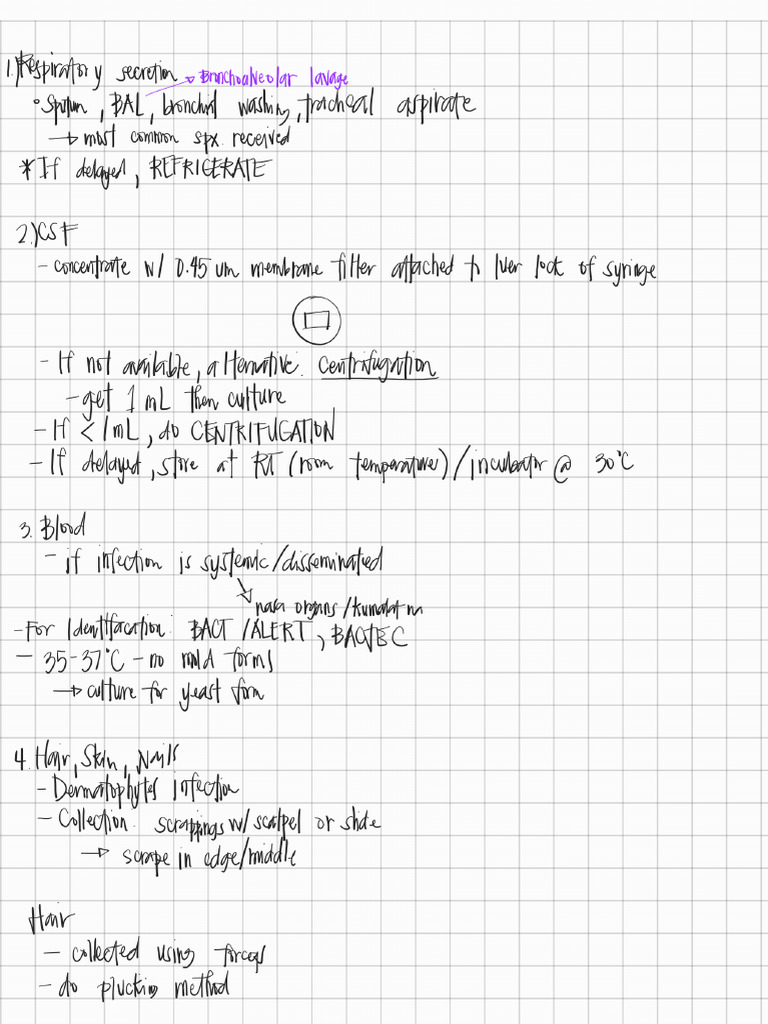 1.) Respiratory secretion → Bronchoalveolar lavage
• Sputum, BAL, bronchial washing, tracheal aspirate
→ most common spx. received
* If delayed, REFRIGERATE
2.) CSF
- concentrate w/ 0.45 um membrane filter attached to luer lock of syringe
- If not available, alternative: centrifugation
- get 1 mL then culture
- If < 1 mL, do CENTRIFUGATION
- If delayed, store at RT (room temperature) / incubator @ 30°C
3. Blood
- if infection is systemic/disseminated
nasa organs / kumalat na
- For Identification: BACT/ALERT, BACTEC
- 35-37°C - no mold forms
→ culture for yeast form
4. Hair, Skin, Nails
- Dermatophytes infection
- Collection: scrappings w/ scalpel or slide
→ scrape in edge/middle
Hair
- collected using forceps
- do plucking method